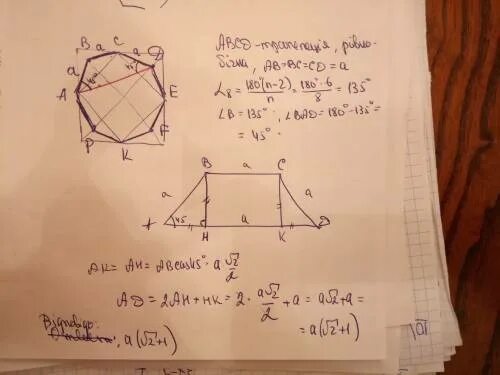 B a C a D
a 45°
a 45°
A E
P K F
ABCD - трапеція, рівно-
бічна, AB=BC=CD=a
∠8 = 180°(n-2)/n = 180°·6/8 = 135°
∠B = 135°; ∠BAD = 180°-135° =
= 45°.
B a C
a a
A 45 a D
H K
AK = AH = ABcos45° · a √2/2
AD = 2AH + HK = 2 · a√2/2 + a = a√2 + a =
= a(√2+1)
Відповідь: a(√2+1)